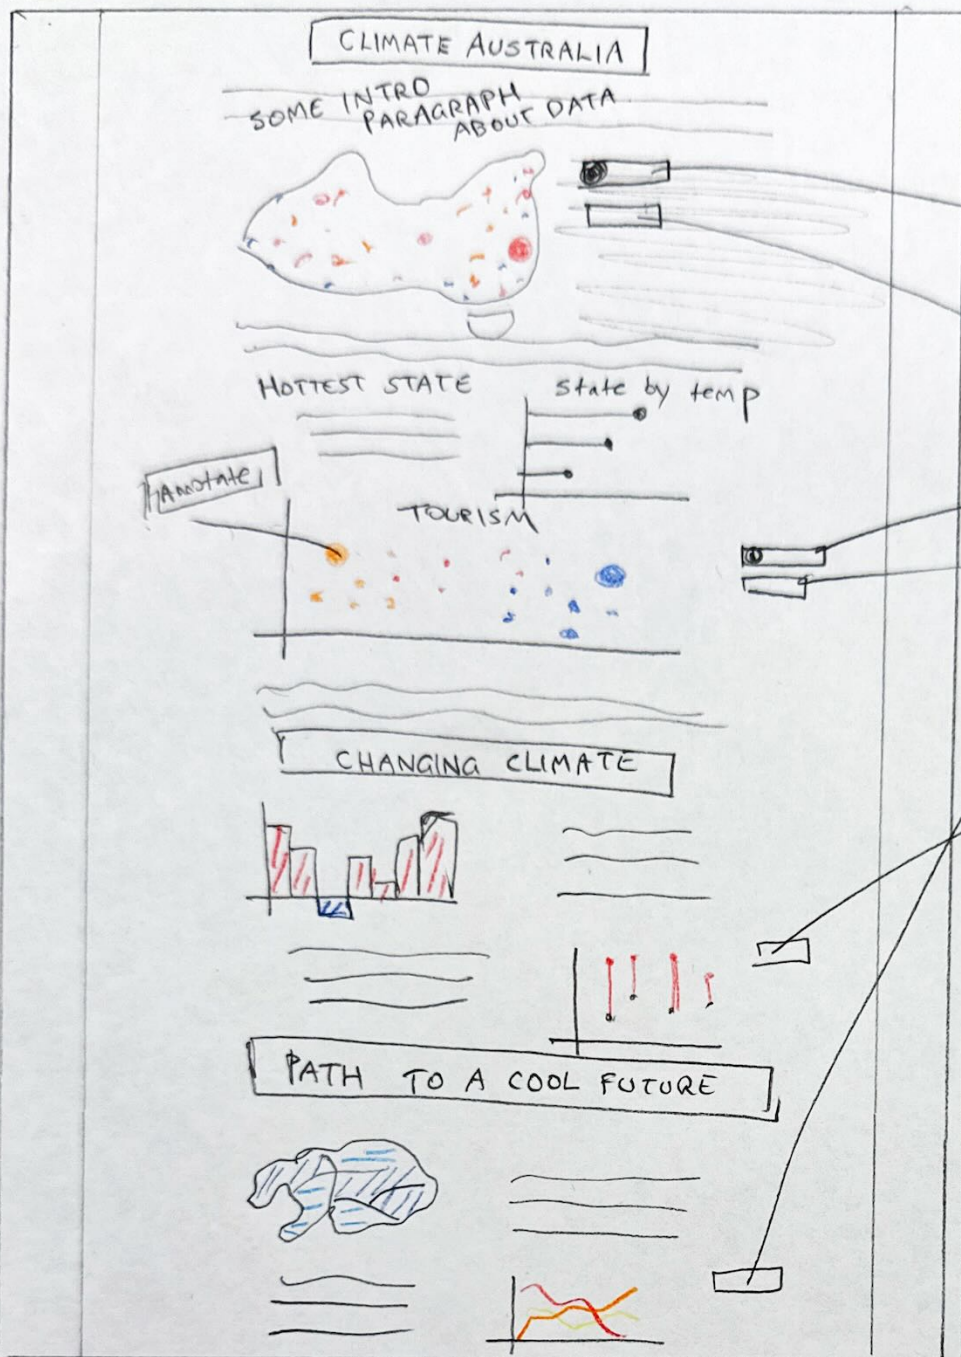 CLIMATE AUSTRALIA
SOME INTRO
PARAGRAPH
ABOUT DATA
HOTTEST STATE
State by temp
Annotate
TOURISM
CHANGING CLIMATE
PATH TO A COOL FUTURE